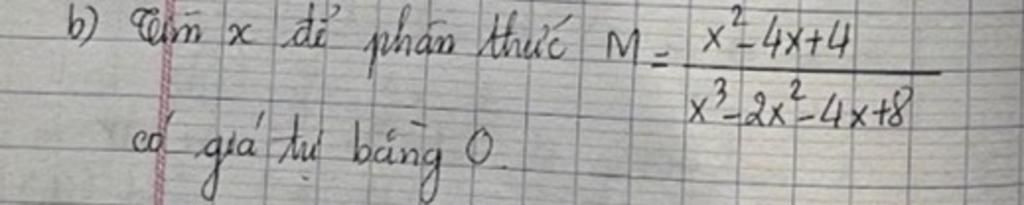 b) Tìm x để phân thức M = \frac{x^2-4x+4}{x^3-2x^2-4x+8}
có giá trị bằng 0.